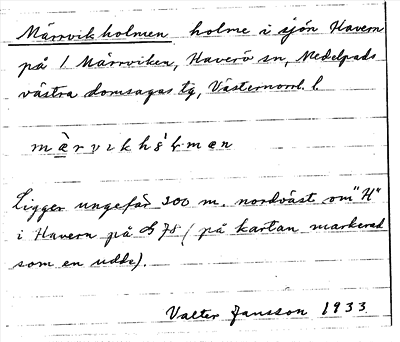 Märrvikholmen holme i sjön Havern
på / Märrviken, Haverö sn, Medelpads
västra domsagas tg, Västernorrl. l.
mæ̀rvɩkhɔ́ɫmæn
Ligger ungefär 300 m. nordväst om "H"
i Havern på S 78 (på kartan markerad
som en udde).
Valter Jansson 1933